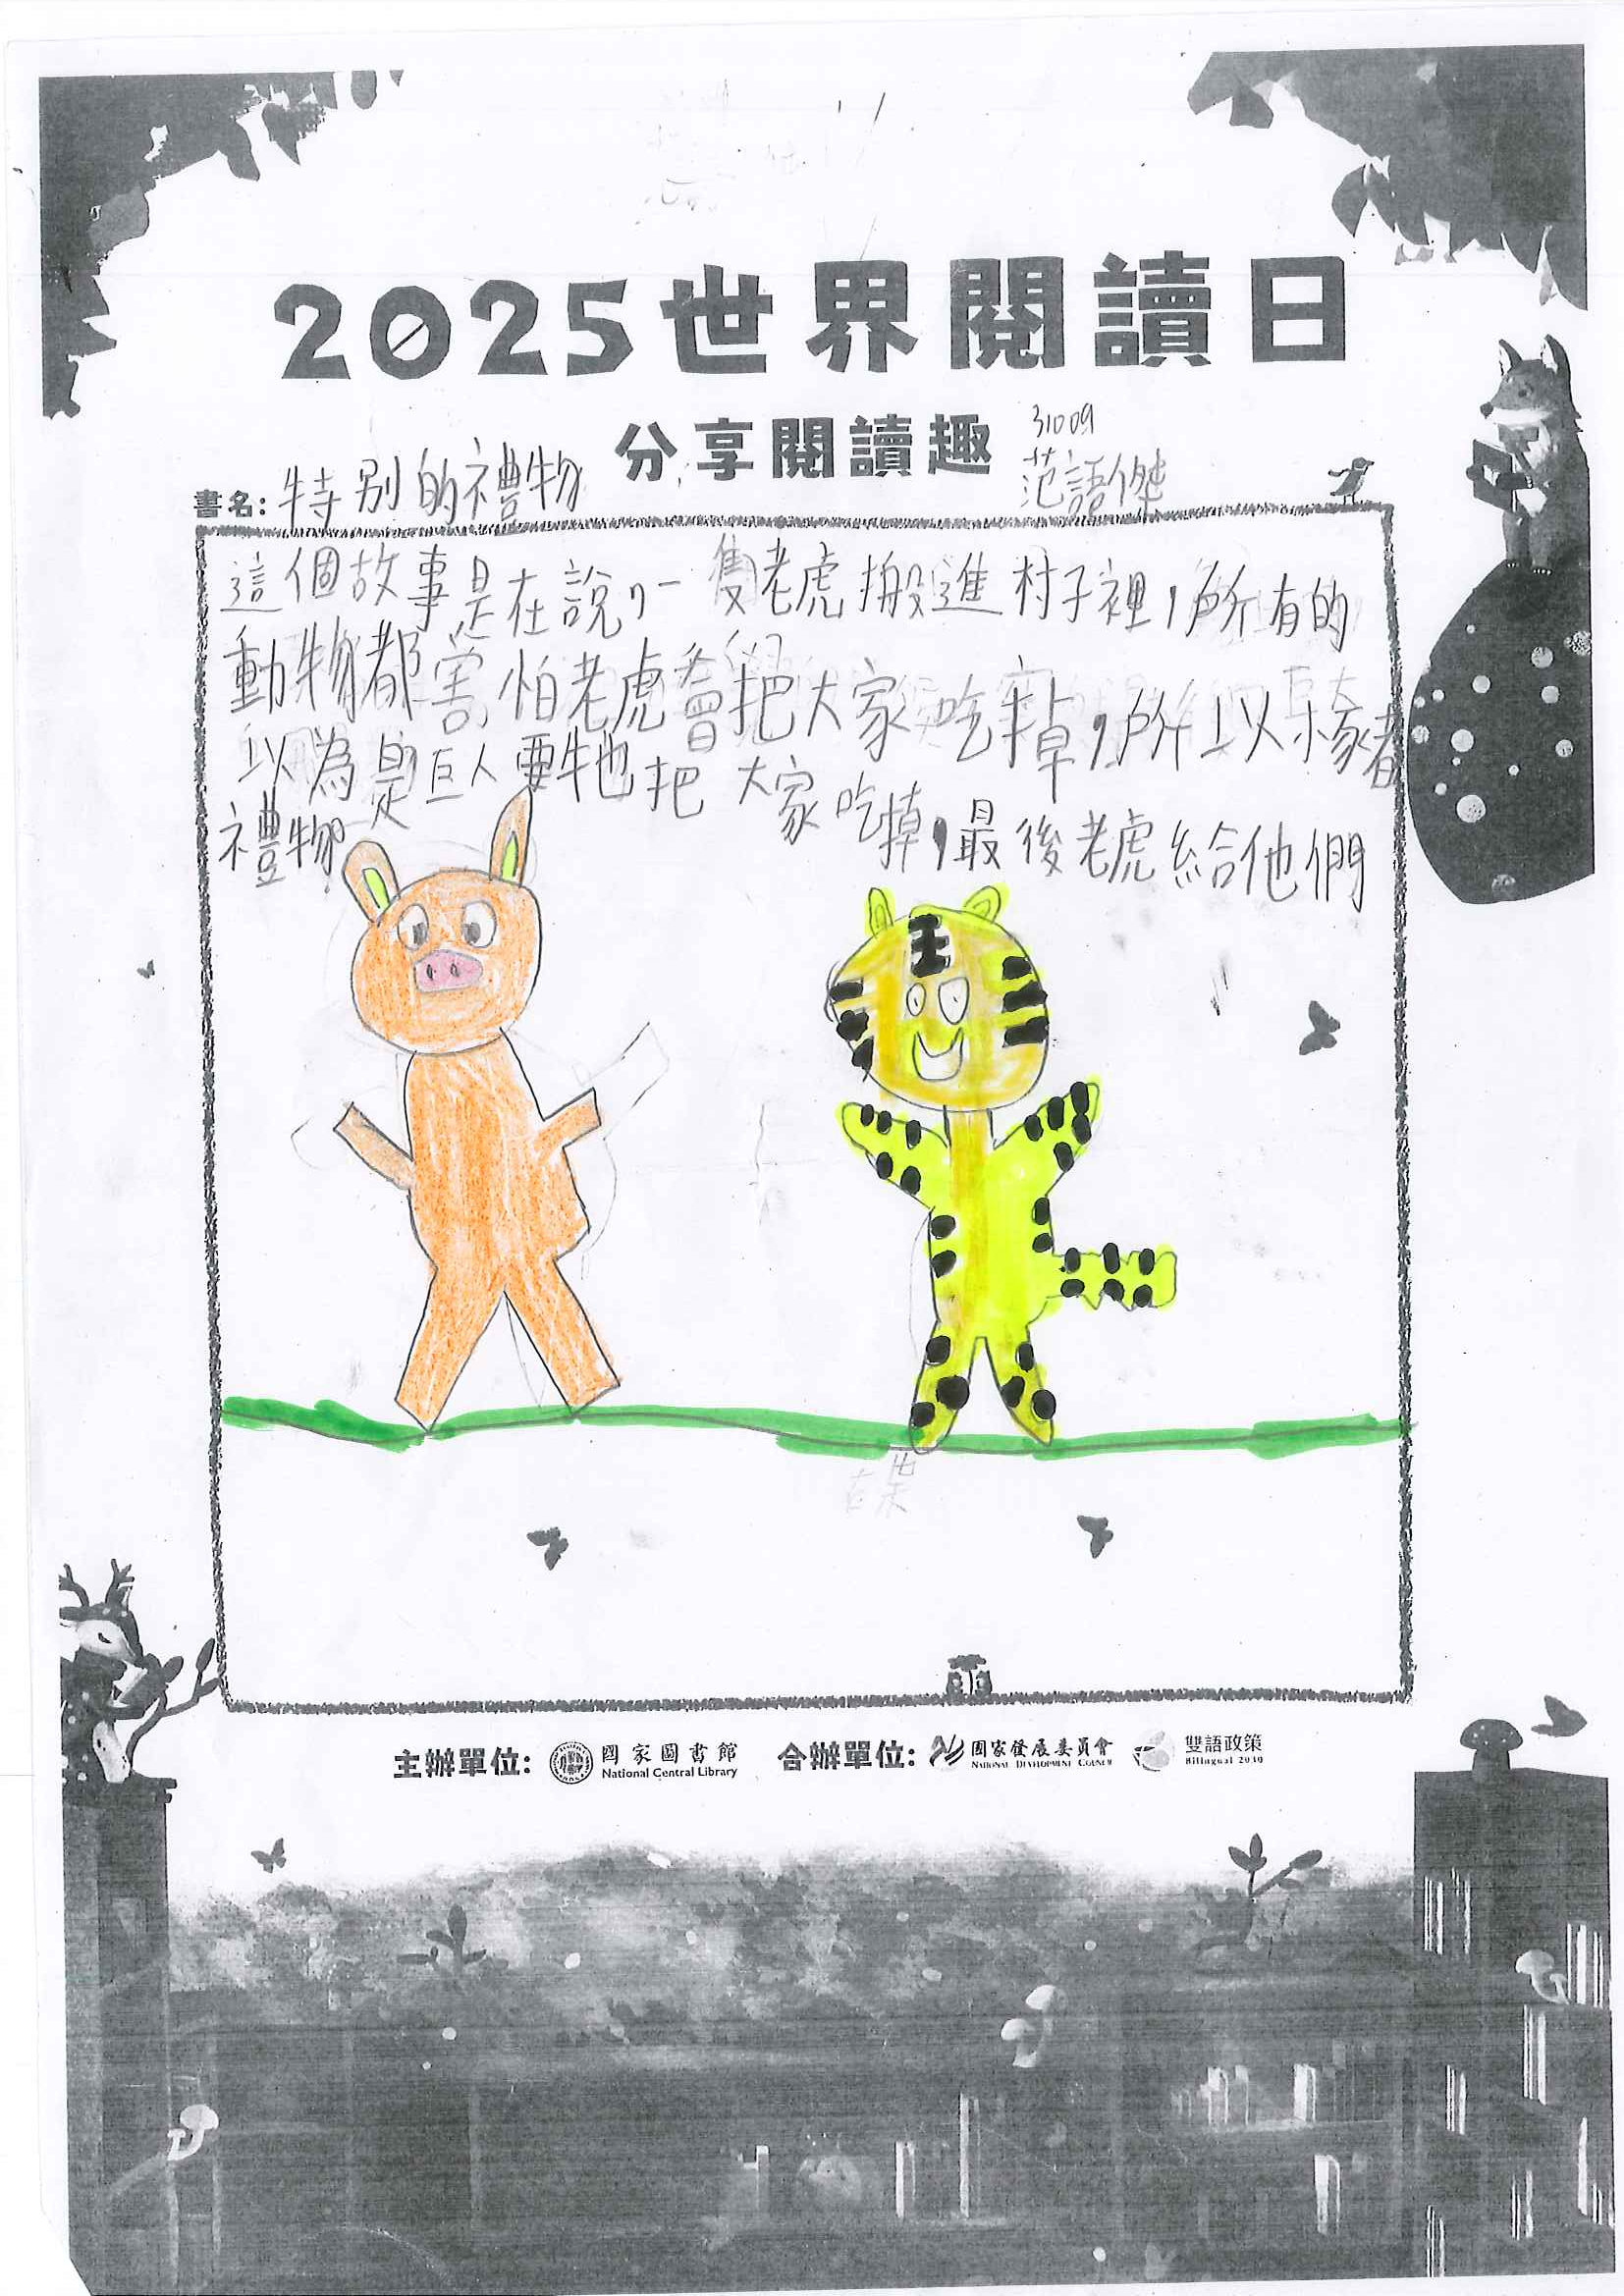 2025世界閱讀日
分享閱讀趣
31009
范語傑
書名：特別的禮物
這個故事是在說，一隻老虎搬進村子裡，所有的
動物都害怕老虎會把大家吃掉，所以豬
以為是巨人要牠把大家吃掉，最後老虎給他們
禮物。
王
主辦單位： 國家圖書館 National Central Library 合辦單位： 國家發展委員會 NATIONAL DEVELOPMENT COUNCIL 雙語政策 Bilingual 2030